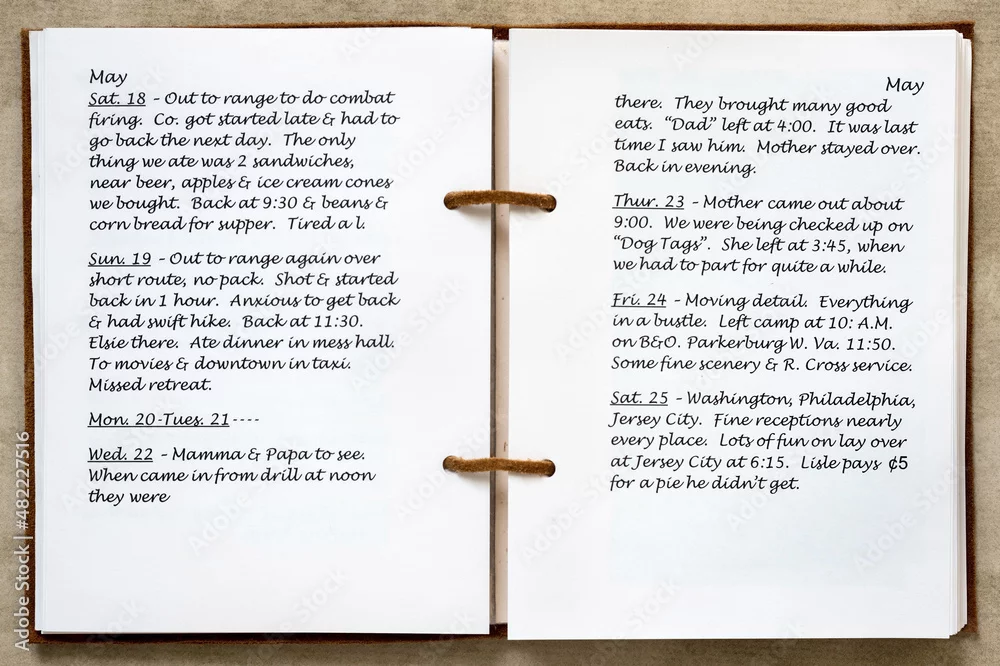 May
Sat. 18 - Out to range to do combat
firing. Co. got started late & had to
go back the next day. The only
thing we ate was 2 sandwiches,
near beer, apples & ice cream cones
we bought. Back at 9:30 & beans &
corn bread for supper. Tired a l.
Sun. 19 - Out to range again over
short route, no pack. Shot & started
back in 1 hour. Anxious to get back
& had swift hike. Back at 11:30.
Elsie there. Ate dinner in mess hall.
To movies & downtown in taxi.
Missed retreat.
Mon. 20-Tues. 21 ----
Wed. 22 - Mamma & Papa to see.
When came in from drill at noon
they were
May
there. They brought many good
eats. “Dad” left at 4:00. It was last
time I saw him. Mother stayed over.
Back in evening.
Thur. 23 - Mother came out about
9:00. We were being checked up on
“Dog Tags”. She left at 3:45, when
we had to part for quite a while.
Fri. 24 - Moving detail. Everything
in a bustle. Left camp at 10: A.M.
on B&O. Parkerburg W. Va. 11:50.
Some fine scenery & R. Cross service.
Sat. 25 - Washington, Philadelphia,
Jersey City. Fine receptions nearly
every place. Lots of fun on lay over
at Jersey City at 6:15. Lisle pays ¢5
for a pie he didn't get.
Adobe Stock | #482227516